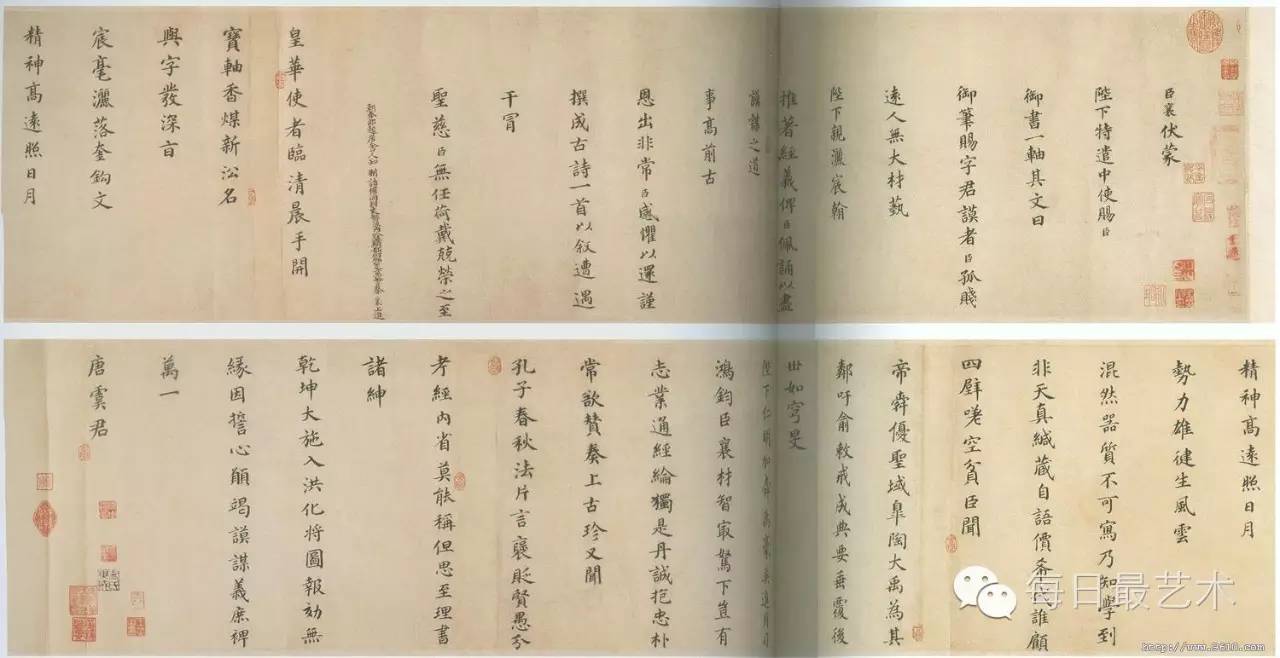 臣襄伏蒙
陛下特遣中使賜臣
御書一軸其文曰
御筆賜字君謨者臣孤賤
遠人無大材藝
陛下親灑宸翰
推著經義俾臣佩誦以盡
謨謀之道
事高前古
恩出非常臣感懼以還謹
撰成古詩一首以敘遭遇
干冒
聖慈臣無任荷戴兢榮之至
皇華使者臨清晨手開
寶軸香煤新沿名
與字發深旨
宸毫灑落奎鉤文
精神高遠照日月
精神高遠照日月
勢力雄健生風雲
混然器質不可寫乃知學到
非天真緘藏自語價希代誰顧
四壁嘆空貧臣聞
帝舜優聖域皋陶大禹為其
鄰吁俞敕戒成典要垂覆後
世如穹旻
陛下仁明
鴻鈞臣襄材智最駑下豈有
志業通經綸獨是丹誠抱忠朴
常欲贊奏上古珍又聞
孔子春秋法片言褒貶賢愚分
考經內省莫能稱但思至理書
諸紳
乾坤大施入洪化將圖報効無
緣因誓心願竭謨謀義庶裨
萬一
唐虞君
每日最艺术
http://www.9610.com